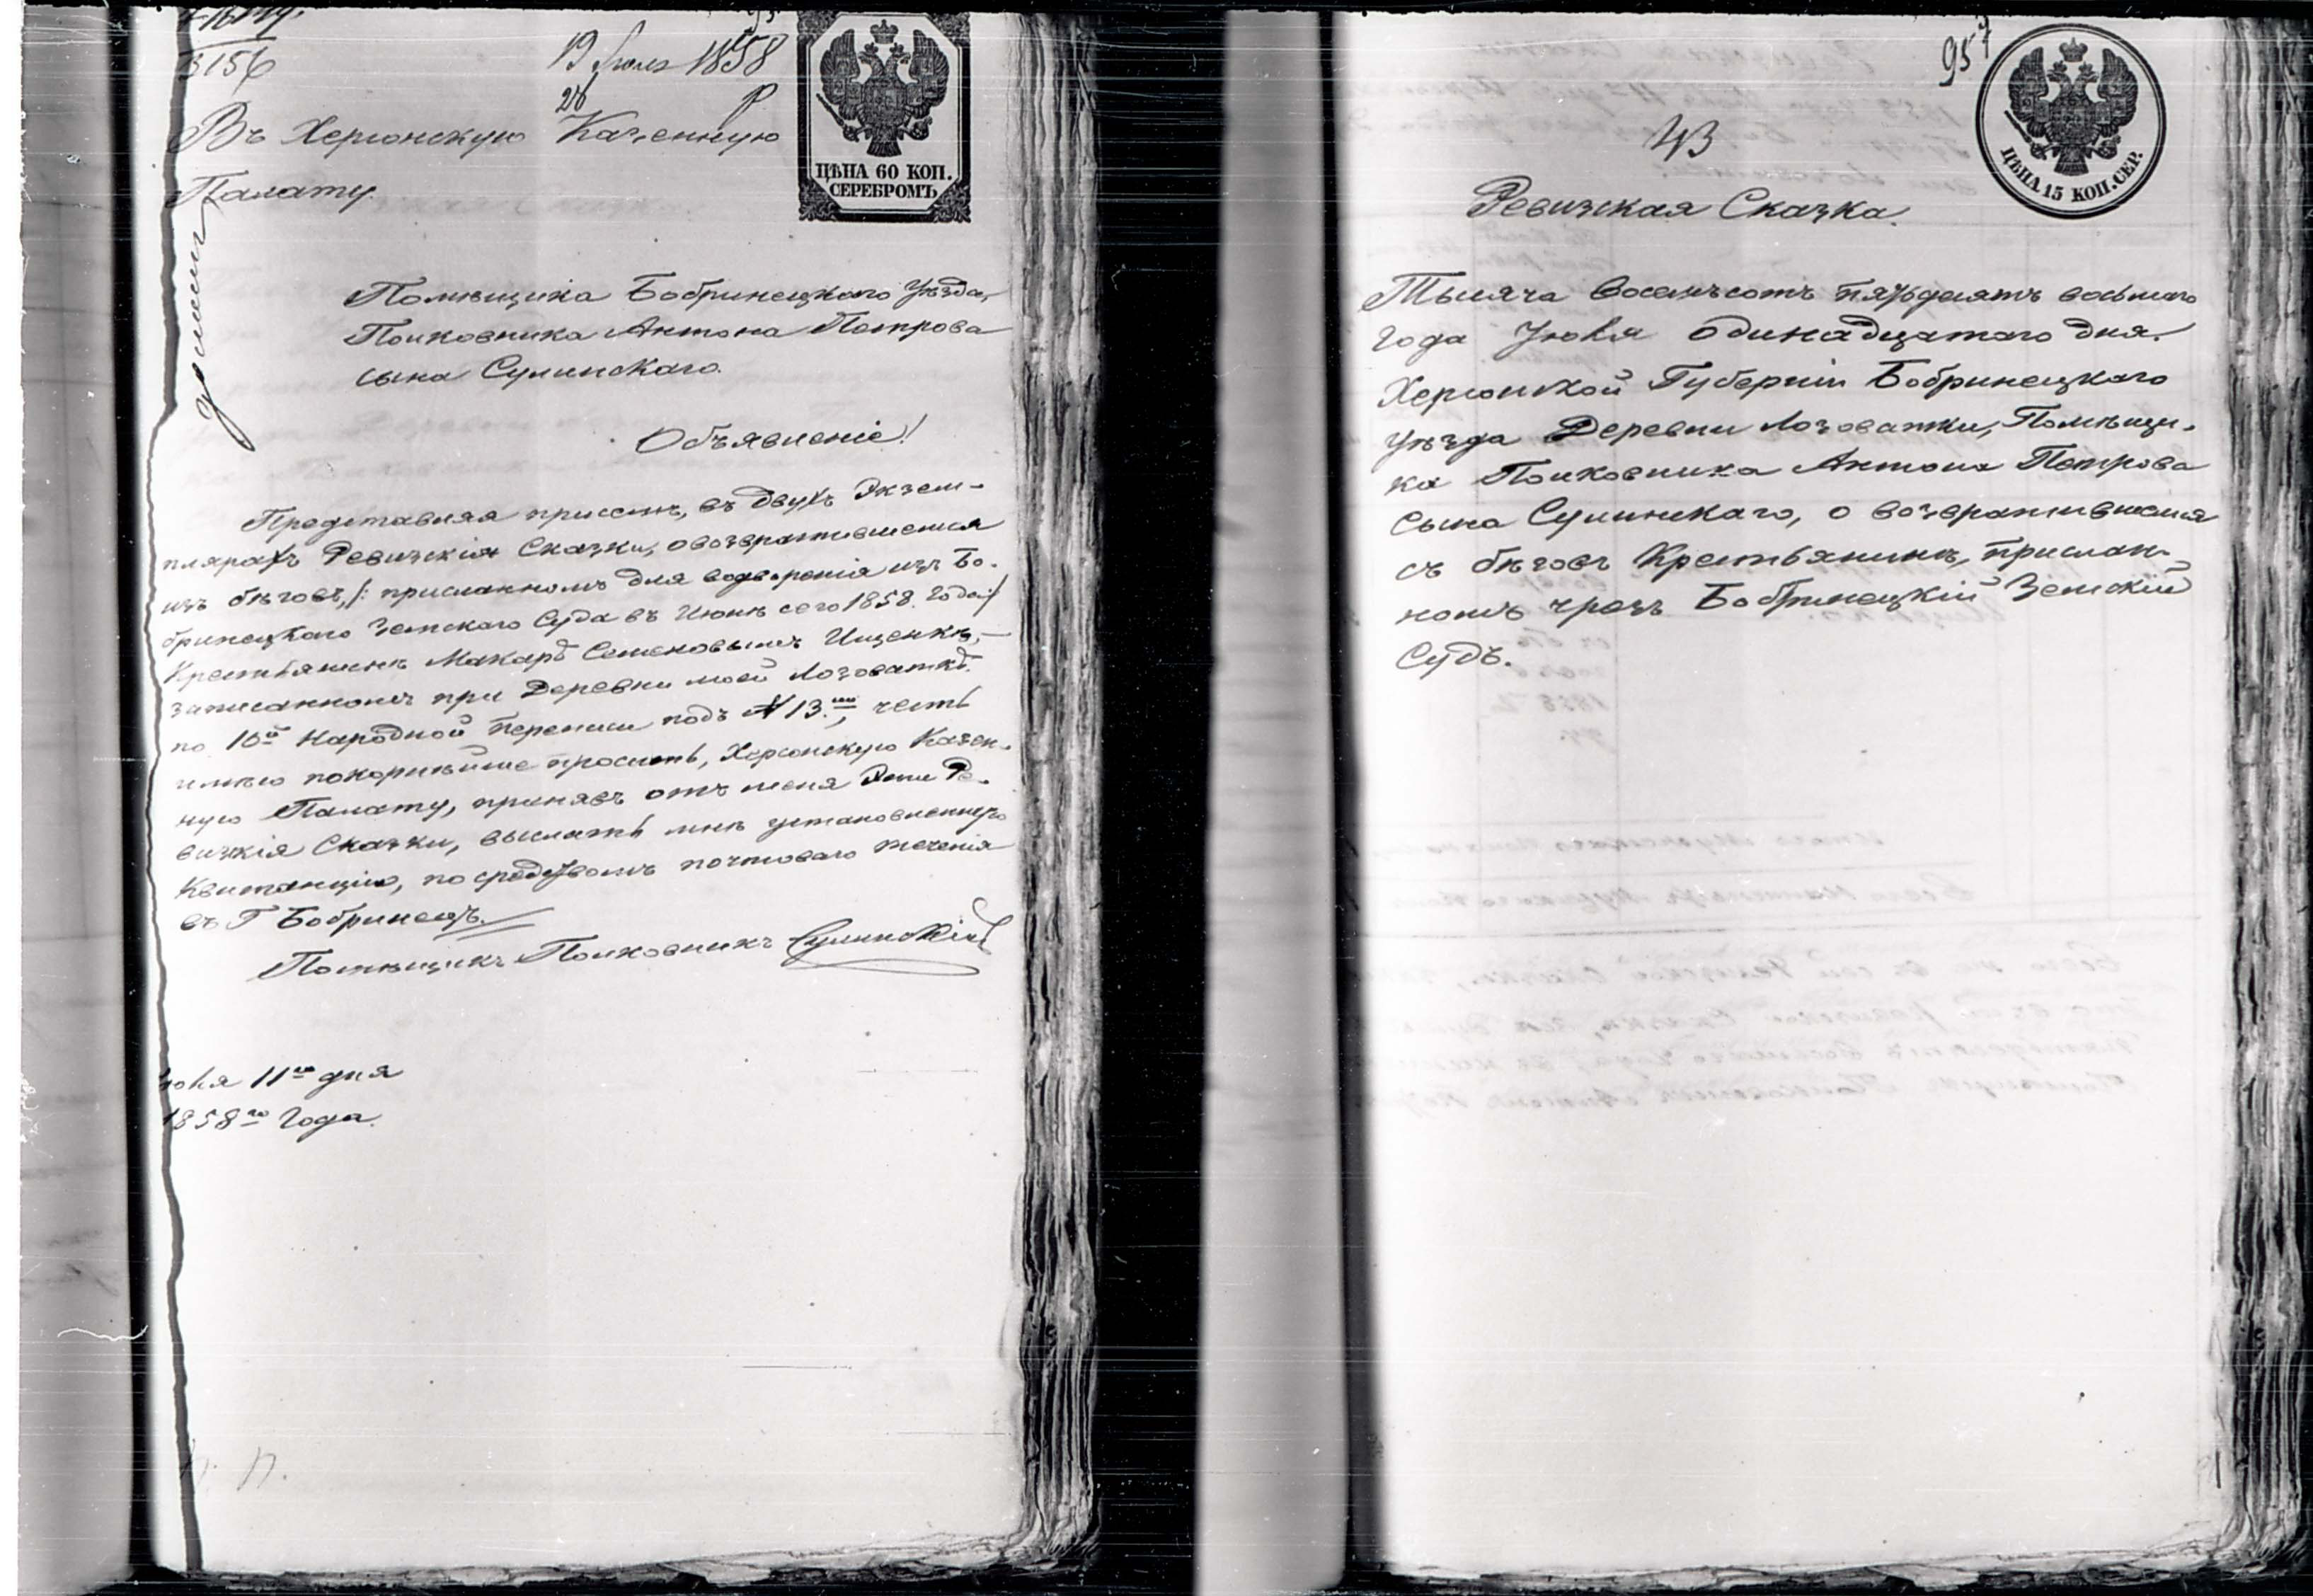 5156
19 Іюля 1858
28
Въ Херсонскую Казенную
Палату.
ЦѢНА 60 КОП.
СЕРЕБРОМЪ
Помѣщика Бобринецкаго Уѣзда,
Полковника Антона Петрова
сына Сулинскаго.
Объявленіе!
Представляя присемъ, въ двухъ Экзем-
плярахъ Ревизскія Сказки, овозвратившемся
изъ бѣговъ, /: присланномъ для водворенія изъ Бо-
бринецкаго Земскаго Суда въ Июнѣ сего 1858. Года :/
Крестьянинѣ Макарѣ Семеновымъ Ищенкѣ,-
записанномъ при Деревни моей Лозоваткѣ
по 10й Народной Переписи подъ № 13.мъ, честь
имѣю покорнѣйше просить, Херсонскую Казен-
ную Палату, принявъ отъ меня Эти Ре-
визкія Сказки, выслать мнѣ установленную
Квитанцію, посредствомъ почтоваго теченія
въ Г Бобринецъ.
Помѣщикъ Полковникъ Сулинскій
юля 11го дня
1858го Года.
957
ЦѢНА 15 КОП. СЕР.
43
Ревизская Сказка.
Тысяча восемьсотъ пятьдесятъ восьмаго
Года Июля Одинадцатаго дня.
Херсонской Губерніи Бобринецкаго
Уѣзда Деревни Лозоватки, Помѣщи-
ка Полковника Антона Петрова
Сына Сулинскаго, о возвратившемся
съ бѣговъ Крестьянинѣ, прислан-
номъ чрезъ Бобринецкій Земскій
Судъ.